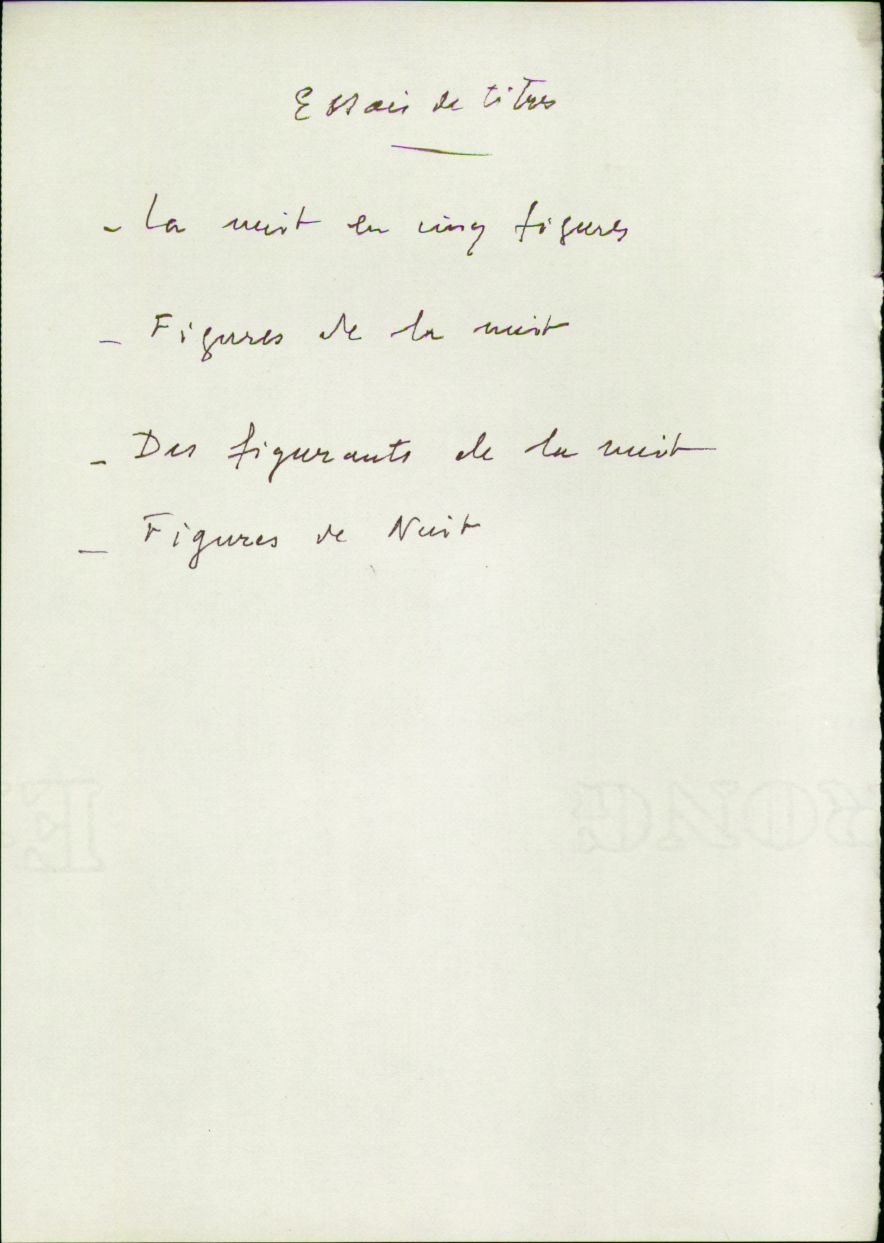 Essais de titres
- La nuit en cinq figures
- Figures de la nuit
- Des figurants de la nuit
- Figures de Nuit